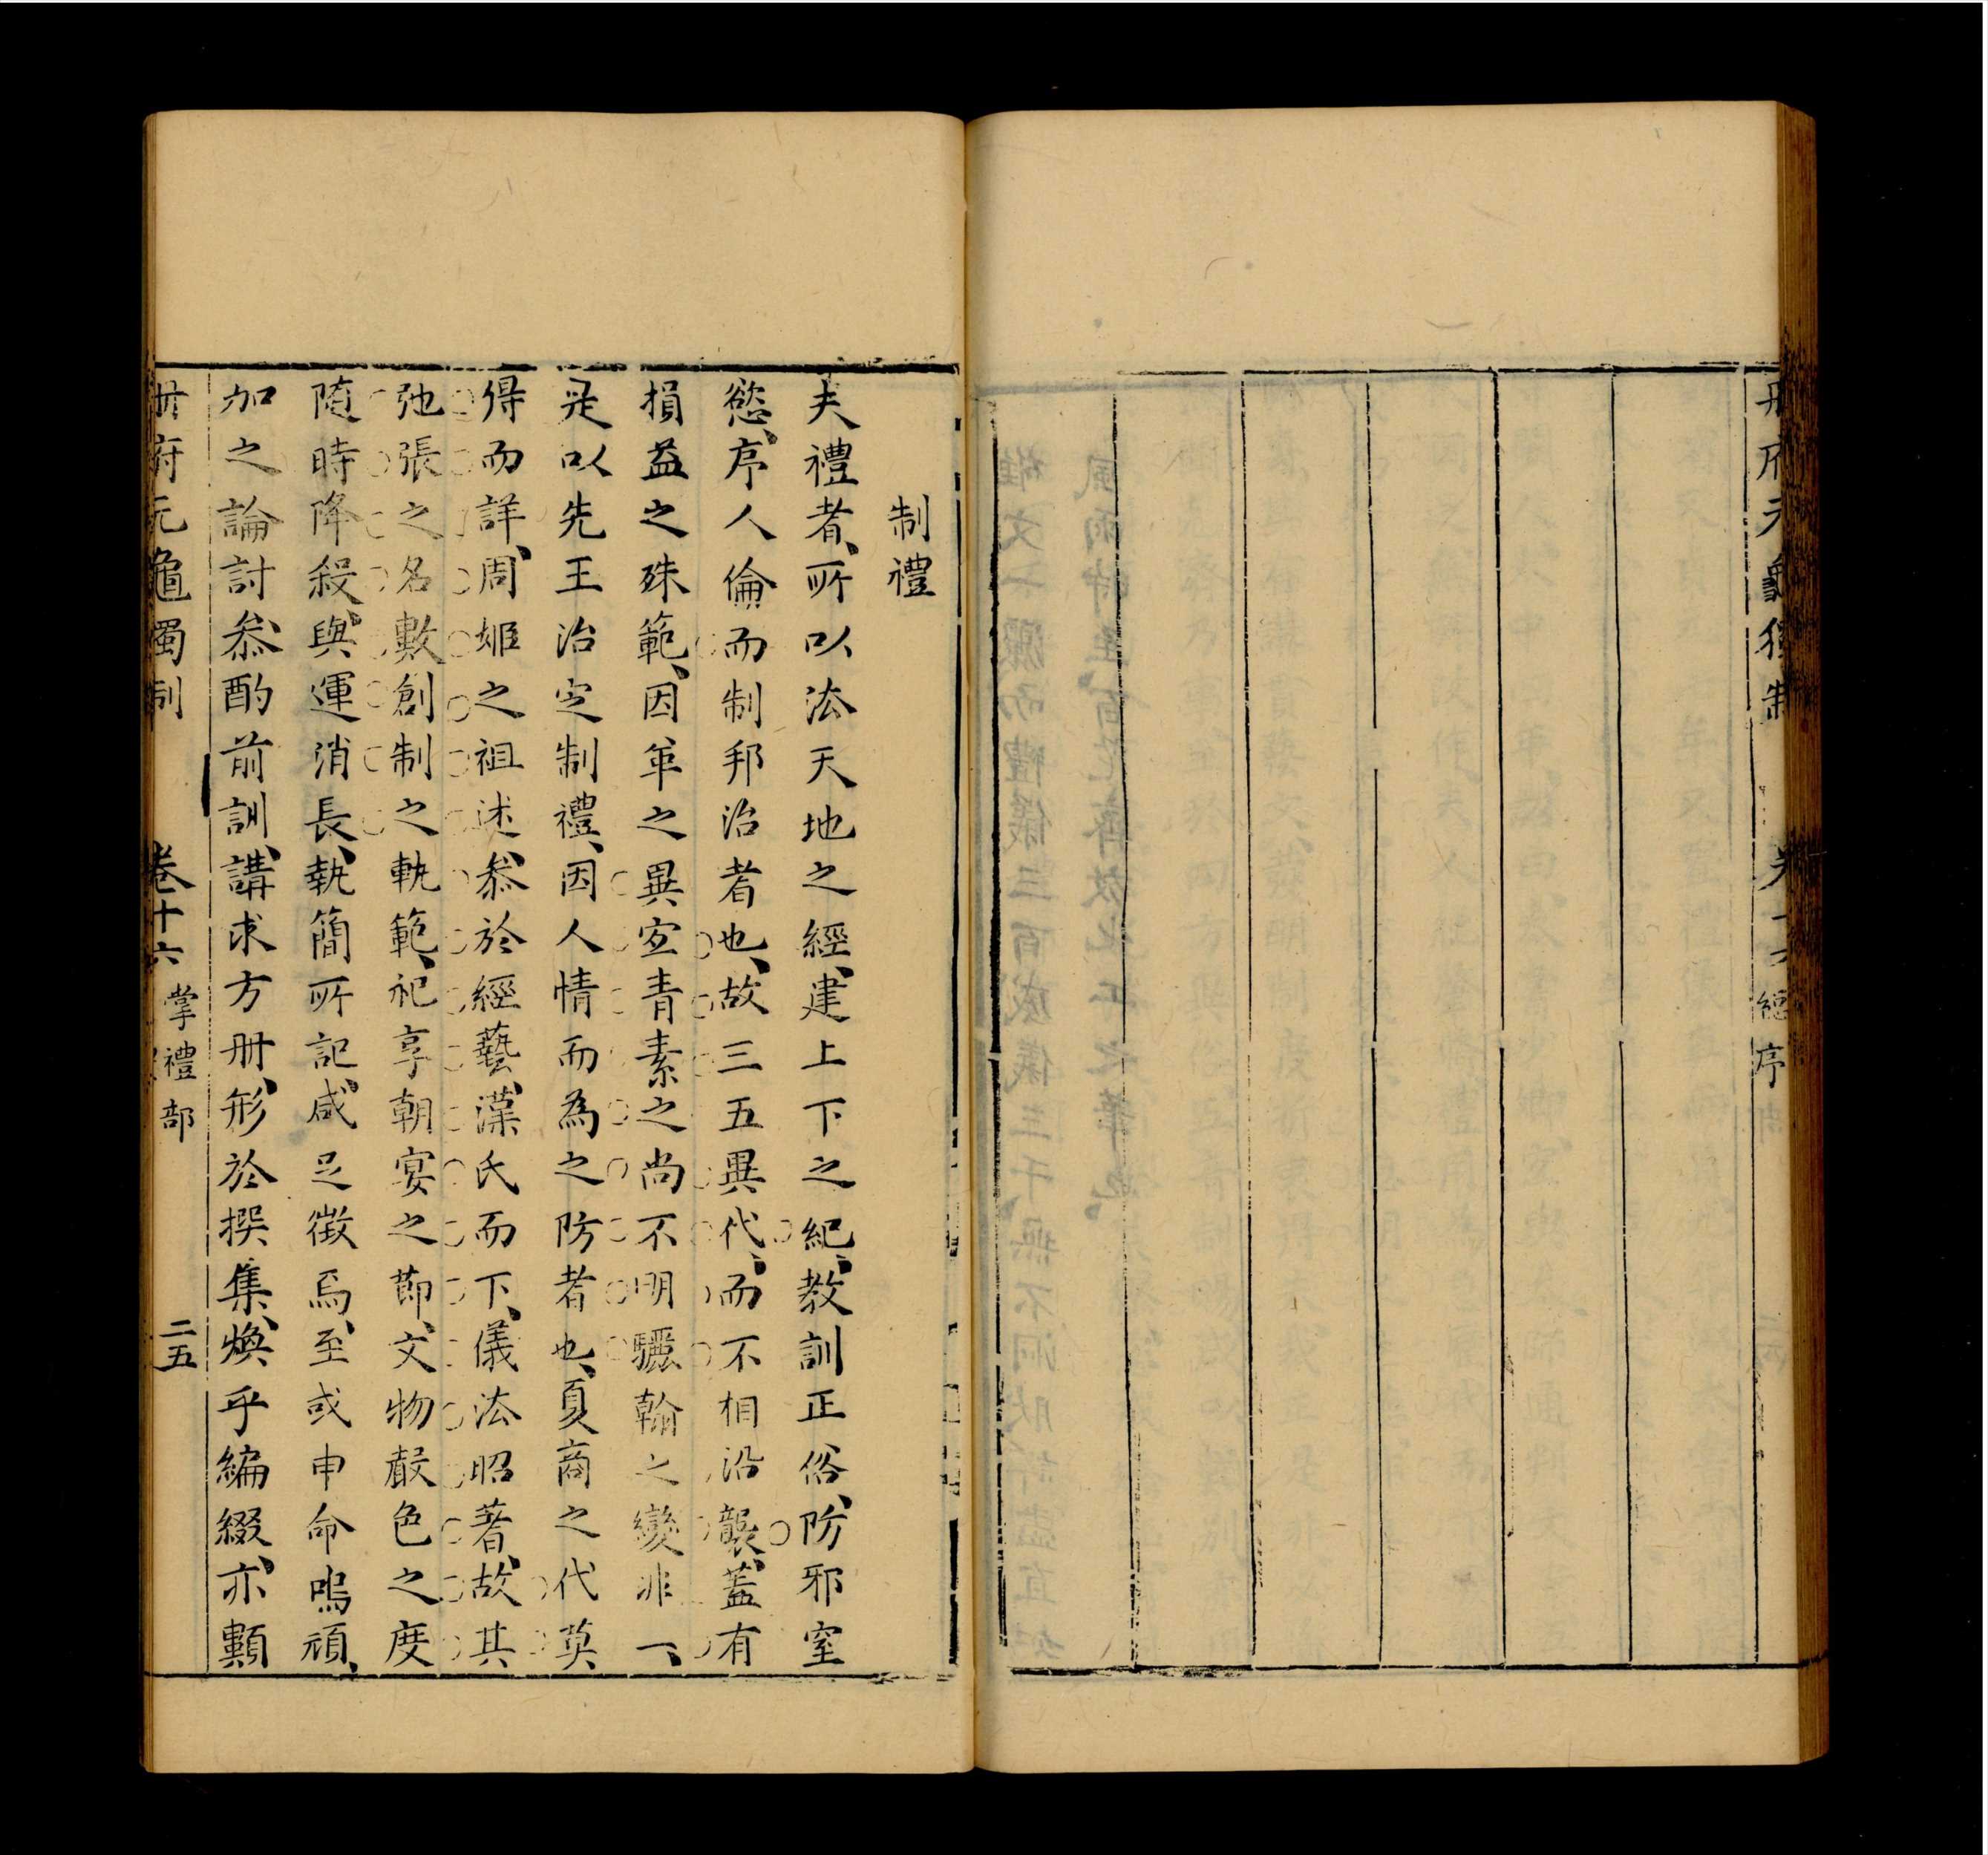 册府元龜獨制 卷十六 總序
制禮
夫禮者、所以法天地之經、建上下之紀、教訓正俗、防邪窒
慾、序人倫而制邦治者也、故三五異代、而不相沿襲、蓋有
損益之殊範、因革之異宜青素之尚不明驪翰之變非一、
是以先王治定制禮、因人情而為之防者也、夏商之代莫
得而詳、周姬之祖述、叅於經藝、漢氏而下、儀法昭著、故其
弛張之名數創制之軌範、祀享朝宴之節、文物聲色之度
隨時降殺、與運消長、執簡所記、咸足徵焉、至或申命鴻碩、
加之論討、叅酌前訓、講求方册、形於撰集、煥乎編綴、亦顯
册府元龜獨制 卷十六 掌禮部 二五